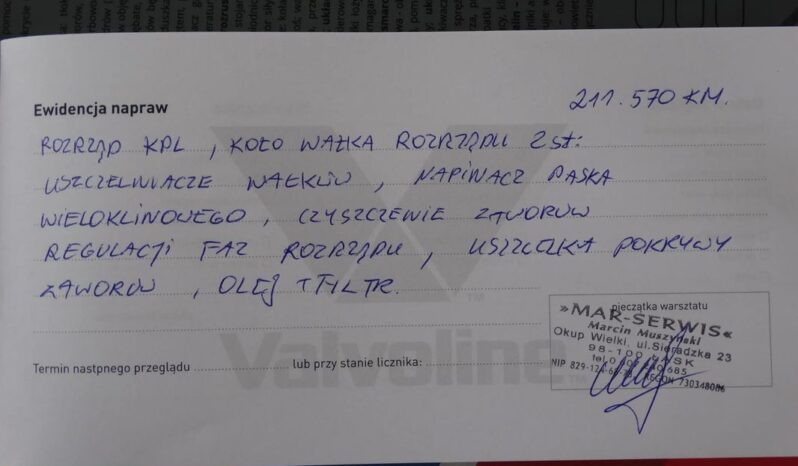 211.570 KM.
Ewidencja napraw
ROZRZĄD KPL, KOŁO WAŁKA ROZRZĄDU 2 szt:
USZCZELNIACZE WAŁKÓW, NAPINACZ PASKA
WIELOKLINOWEGO, CZYSZCZENIE ZAWORÓW
REGULACJI FAZ ROZRZĄDU, USZCZELKA POKRYWY
ZAWORÓW, OLEJ + FILTR.
TM
Valvoline
pieczątka warsztatu
»MAR-SERWIS«
Marcin Muszyński
Okup Wielki, ul. Sieradzka 23
98-100 ŁASK
NIP 829-124- REGON 730348086
Termin nastpnego przeglądu lub przy stanie licznika: